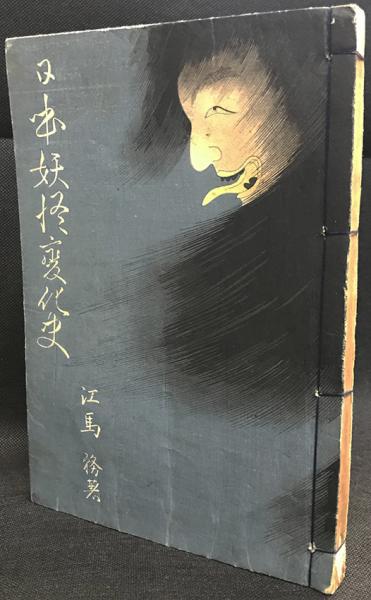 日本妖怪變化史
江馬務著